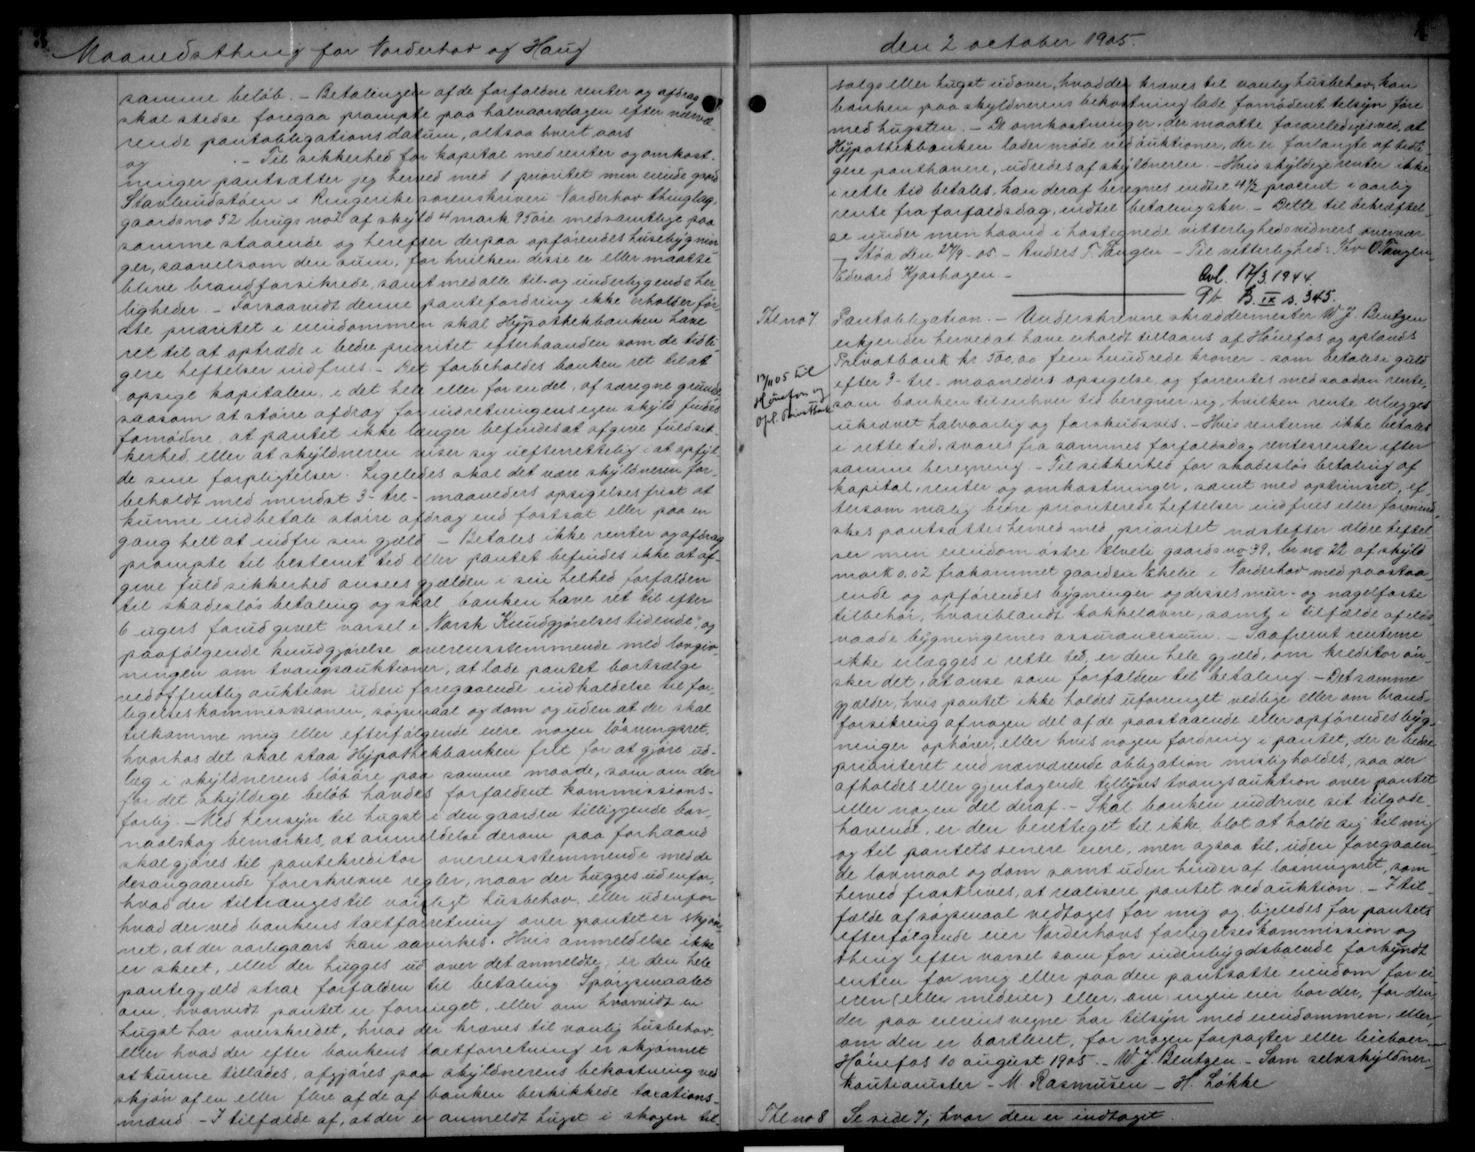 Maanedsthing for Norderhov og Haug
samme beløb. – Betalingen af de forfaldne renter og afdrag
skal stedse foregaa prompte paa halvaarsdagen efter nærvæ-
rende pantobligations datum, altsaa hvert aars
og . – Til sikkerhed for kapital med renter og omkost-
ninger pantsætter jeg herved med 1 prioritet min eiende gaard
i Ringerike sorenskriveri Norderhov thinglag,
gaards no 52 brugs no 2 af skyld 4 mark 95 øre med samtlige paa
samme staaende og herefter derpaa opførendes husebygnin-
ger, saavelsom den sum, for hvilken disse er eller maatte
blive brandforsikrede, samt med alle til- og underliggende her-
ligheder. – Forsaavidt denne pantefordring ikke erholder før-
ste prioritet i eiendommen skal Hypothekbanken have
ret til at optræde i bedre prioritet efterhaanden som de tidli-
gere heftelser indfries. – Det forbeholdes banken ret til at
opsige kapitalen, i det hele eller for en del, af særegne grunde
saasom at større afdrag for indretningens egen skyld findes
fornødne, at pantet ikke længer befindes at afgive fuld sik-
kerhed, eller at skyldneren viser sig uefterrettelig i at opfyl-
de sine forpligtelser. Ligeledes skal det være skyldneren for-
beholdt med mindst 3 – tre – maaneders opsigelses frist at
kunne indbetale større afdrag end fastsat eller paa en
gang helt at indfri sin gjæld – Betales ikke renter og afdrag
prompte til bestemt tid eller pantet befindes ikke at af-
give fuld sikkerhed ansees gjælden i sin helhed forfalden
til skadesløs betaling og skal banken have ret til efter
6 ugers forud givet varsel i "Norsk Kundgjørelsestidende", og
paafølgende kundgjørelse overensstemmende med lovgiv-
ningen om tvangsauktioner, at lade pantet bortsælge
ved offentlig auktion uden foregaaende indkaldelse til for-
ligelseskommissionen, søgsmaal og dom og uden at der skal
tilkomme mig eller efterfølgende eiere nogen løsningsret,
hvorhos det skal staa Hypothekbanken frit for at gjøre ud-
læg i skyldnerens løsøre paa samme maade, som om der
for det skyldige beløb havdes forfaldent kommissions-
forlig. – Med hensyn til hugst i den gaarden tilliggende bar-
naalskog bemærkes, at anmeldelse derom paa forhaand
skal gjøres til pantekreditor overensstemmende med de
desangaaende foreskrevne regler, naar der hugges udenfor,
hvad der tiltrænges til vanligt husbehov, eller udenfor
hvad der ved bankens taxtforretning over pantet er skjøn-
net, at der aarligaars kan aavirkes. Hvis anmeldelse ikke
er skeet, eller der hugges ud over det anmeldte, er den hele
pantegjæld strax forfalden til betaling. Spørgsmaalet
om, hvorvidt pantet er forringet, eller om hvorvidt en
hugst har overskredet, hvad der kræves til vanlig husbehov,
eller hvad der efter bankens taxtforretning er skjønnet
at kunne tillades, afgjøres paa skyldnerens bekostning ved
skjøn af en eller flere af de af banken beskikkede taxations-
mænd – I tilfælde af, at der er anmeldt hugst i skogen til
den 2 october 1905.
salgs eller huget udover, hvad der kræves til vanlig husbehov, kan
banken paa skyldnerens bekostning lade fornødent tilsyn føre
med hugsten. – De omkostninger, der maatte foranlediges ved, at
Hypothekbanken lader møde ved auktioner, der er forlangte af tidli-
gere panthavere, udredes af skyldneren. – Hvis skyldige renter ikke
i rette tid betales, kan deraf beregnes indtil 4½ procent i aarlig
rente fra forfaldsdag, indtil betaling sker. – Dette til bekræftel-
se under min haand i hostegnede vitterlighedsvidners overvær
– Støa den 27/9 – 05 – Anders T. Tanglen – Til vitterlighed: O. Tanglen
Edvard Hjashagen –
Avl. 17/3.1944
Pb. B. IX s. 345.
Thl no 7 Pantobligation. – Underskrevne skræddermester W J Bentzen
erkjender herved at have erholdt tillaans af Hønefos og oplands
Privatbank kr 500,00 fem hundrede kroner – som betales i guld
12/11 05 til
Hønefos og
Opl. Privatbank
efter 3 – tre – maaneders opsigelse og forrentes med saadan rente,
som banken til enhver tid beregner sig, hvilken rente erlægges
ukrævet halvaarlig og forskudsvis. – Hvis renterne ikke betales
i rette tid, svares fra sammes forfaldsdag rentesrenter efter
samme beregning. – Til sikkerhed for skadesløs betaling af
kapital, renter og omkostninger, samt med oprinsret, ef-
tersom mulig bedre prioriterede heftelser indfries eller formind-
skes pantsættes herved med prioritet næstefter ældre heftel-
ser min eiendom østre Elveli gaards no 39, br no 22 af skyld
mark 0.02 frakommet gaarden Ekelie i Norderhov med paastaa-
ende og opførendes bygninger og disses mur- og nagelfaste
tilbehør, hvoriblandt kakkelovne, samt, i tilfælde af ilds-
vaade bygningernes assurancesum. – Saafremt renterne
ikke erlægges i rette tid, er den hele gjæld, om kreditor øn-
sker det, at anse som forfalden til betaling. – Det samme
gjælder, hvis pantet ikke holdes uforringet vedlige eller om brand-
forsikring af nogen del af de paastaaende eller opførendes byg-
ninger ophører, eller hvis nogen fordring i pantet, der er bedre
prioriteret end nærværende obligation misligholdes, saa der
afholdes eller gjentagende tillyses tvangsauktion over pantet
eller nogen del deraf. – Skal banken inddrive sit tilgode-
havende, er den berettiget til ikke blot at holde sig til mig
og til pantets senere eiere, men ogsaa til, uden foregaaen-
de lovmaal og dom samt uden hinder af løsningsret, som
herved fraskrives, at realisere pantet ved auktion. – I til-
fælde af søgsmaal vedtages for mig og ligeledes for pantets
efterfølgende eier Norderhovs forligelseskommission og
thing efter varsel som for indenbygdsboende forkyndt
enten for mig eller paa den pantsatte eiendom for ei-
eren (eller medeier) eller, om ingen eier bor der, for den,
der paa eierens vegne har tilsyn med eiendommen, eller,
om den er bortleiet, for nogen forpagter eller leieboer.
Hønefos 10 august 1905 – W J. Bentzen – Som selvskyldner-
kautionister – M. Rasmussen – H. Løkke
Thl no 8 Se side 7; hvor den er indtaget.